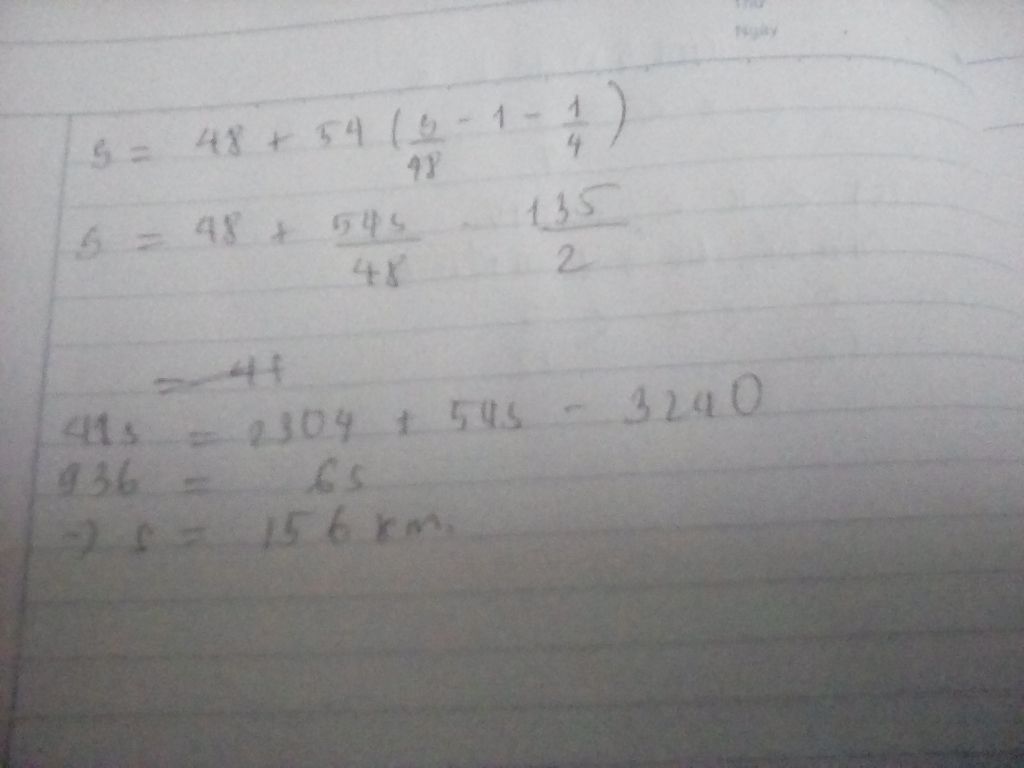 Thứ
Ngày
s = 48 + 54 ( s/48 - 1 - 1/4 )
s = 48 + 54s/48 - 135/2
48s = 2304 + 54s - 3240
936 = 6s
→ s = 156 km.